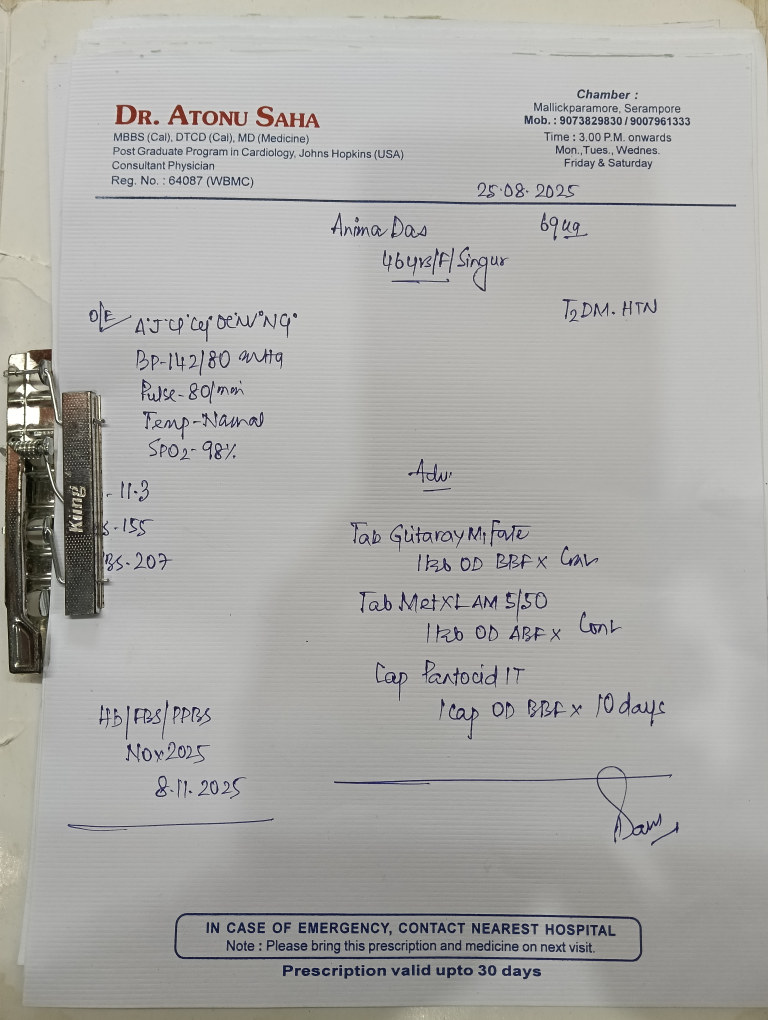 DR. ATONU SAHA
MBBS (Cal), DTCD (Cal), MD (Medicine)
Post Graduate Program in Cardiology, Johns Hopkins (USA)
Consultant Physician
Reg. No. : 64087 (WBMC)
Chamber :
Mallickparamore, Serampore
Mob. : 9073829830 / 9007961333
Time : 3.00 P.M. onwards
Mon.,Tues., Wednes.
Friday & Saturday
25.08.2025
Anima Das 69kg
46yrs/F/Singur
T2DM. HTN
O/E
BP-142/80 mmHg
Pulse-80/min
Temp-Normal
SPO2-98%
- 11.3
S-155
BS-207
Adv.
Tab Glitaray M1 Forte
1 tab OD BBF x Cont
Tab MetXL AM 5/50
1 tab OD ABF x Cont
Cap Pantocid IT
1 cap OD BBF x 10 days
Hb/FBS/PPBS
Nov 2025
8.11.2025
IN CASE OF EMERGENCY, CONTACT NEAREST HOSPITAL
Note : Please bring this prescription and medicine on next visit.
Prescription valid upto 30 days
Kiing